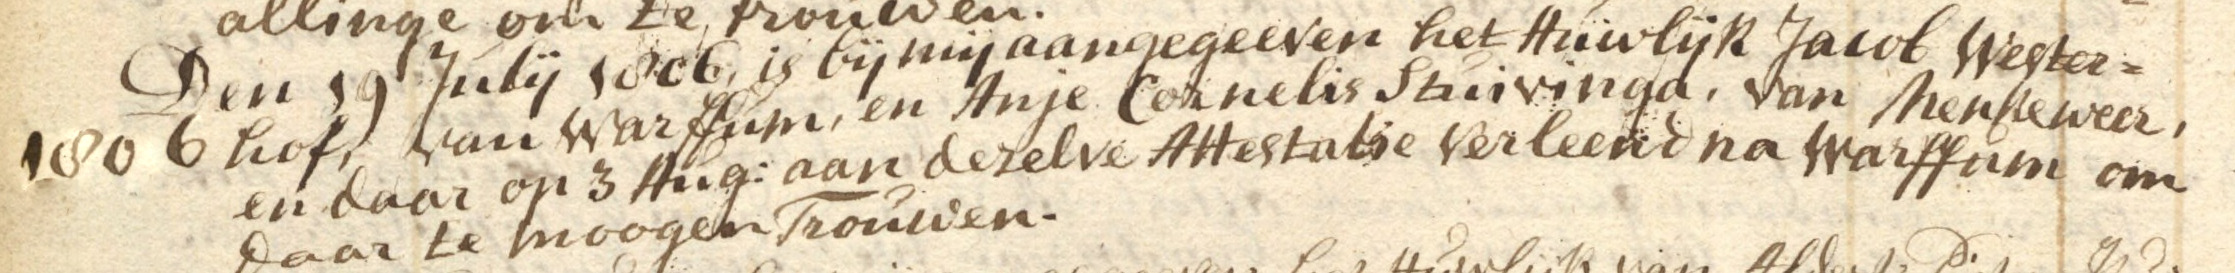 allinge om te trouwen.
Den 19 Julij 1806, is bij mij aangegeeven het Huwlijk Jacob Wester=
1806 hof, van Warffum, en Anje Cornelis Stuivinga, van Menkeweer,
en daar op 3 Aug: aan dezelve Attestatie Verleend na Warffum om
daar te moogen Trouwen.
het Huwlijk van